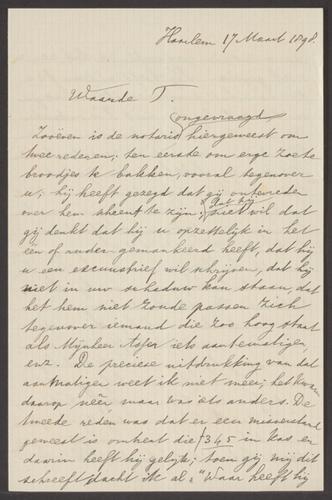 Haarlem 17 Maart 1898.
Waarde T.
ongevraagd
Zooëven is de notaris hiergeweest om
twee redenen; ten eerste om erge zoete
broodjes te bakken, vooral tegenover
u; hij heeft gezegd dat gij ontevreden
over hem scheent te zijn; dat hij niet wil dat
gij denkt dat hij u opzettelijk in het
een of ander gemankeerd heeft, dat hij
u een excuusbrief wil schrijven, dat hij
niet in uw schaduw kan staan, dat
het hem niet zoude passen zich
tegenover iemand die zoo hoog staat
als Mijnheer Asser iets aantematigen,
enz. De preciese uitdrukking van dat
aanmatigen weet ik niet meer; het kwam
daarop neêr maar was iets anders. De
tweede reden was dat er een misverstand
geweest is omtrent die 345 in kas en
daarin heeft hij gelijk; toen gij mij dit
schreeft dacht ik al "Waar heeft hij